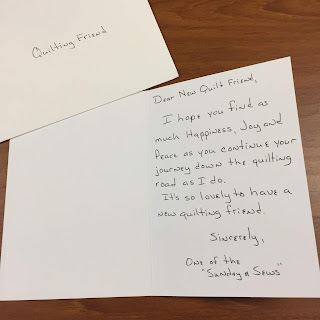 Quilting Friend
Dear New Quilt Friend,
I hope you find as
much Happiness, Joy and
Peace as you continue your
journey down the quilting
road as I do.
It's so lovely to have a
new quilting friend.
Sincerely,
One of the
"Sunday @ Sews"